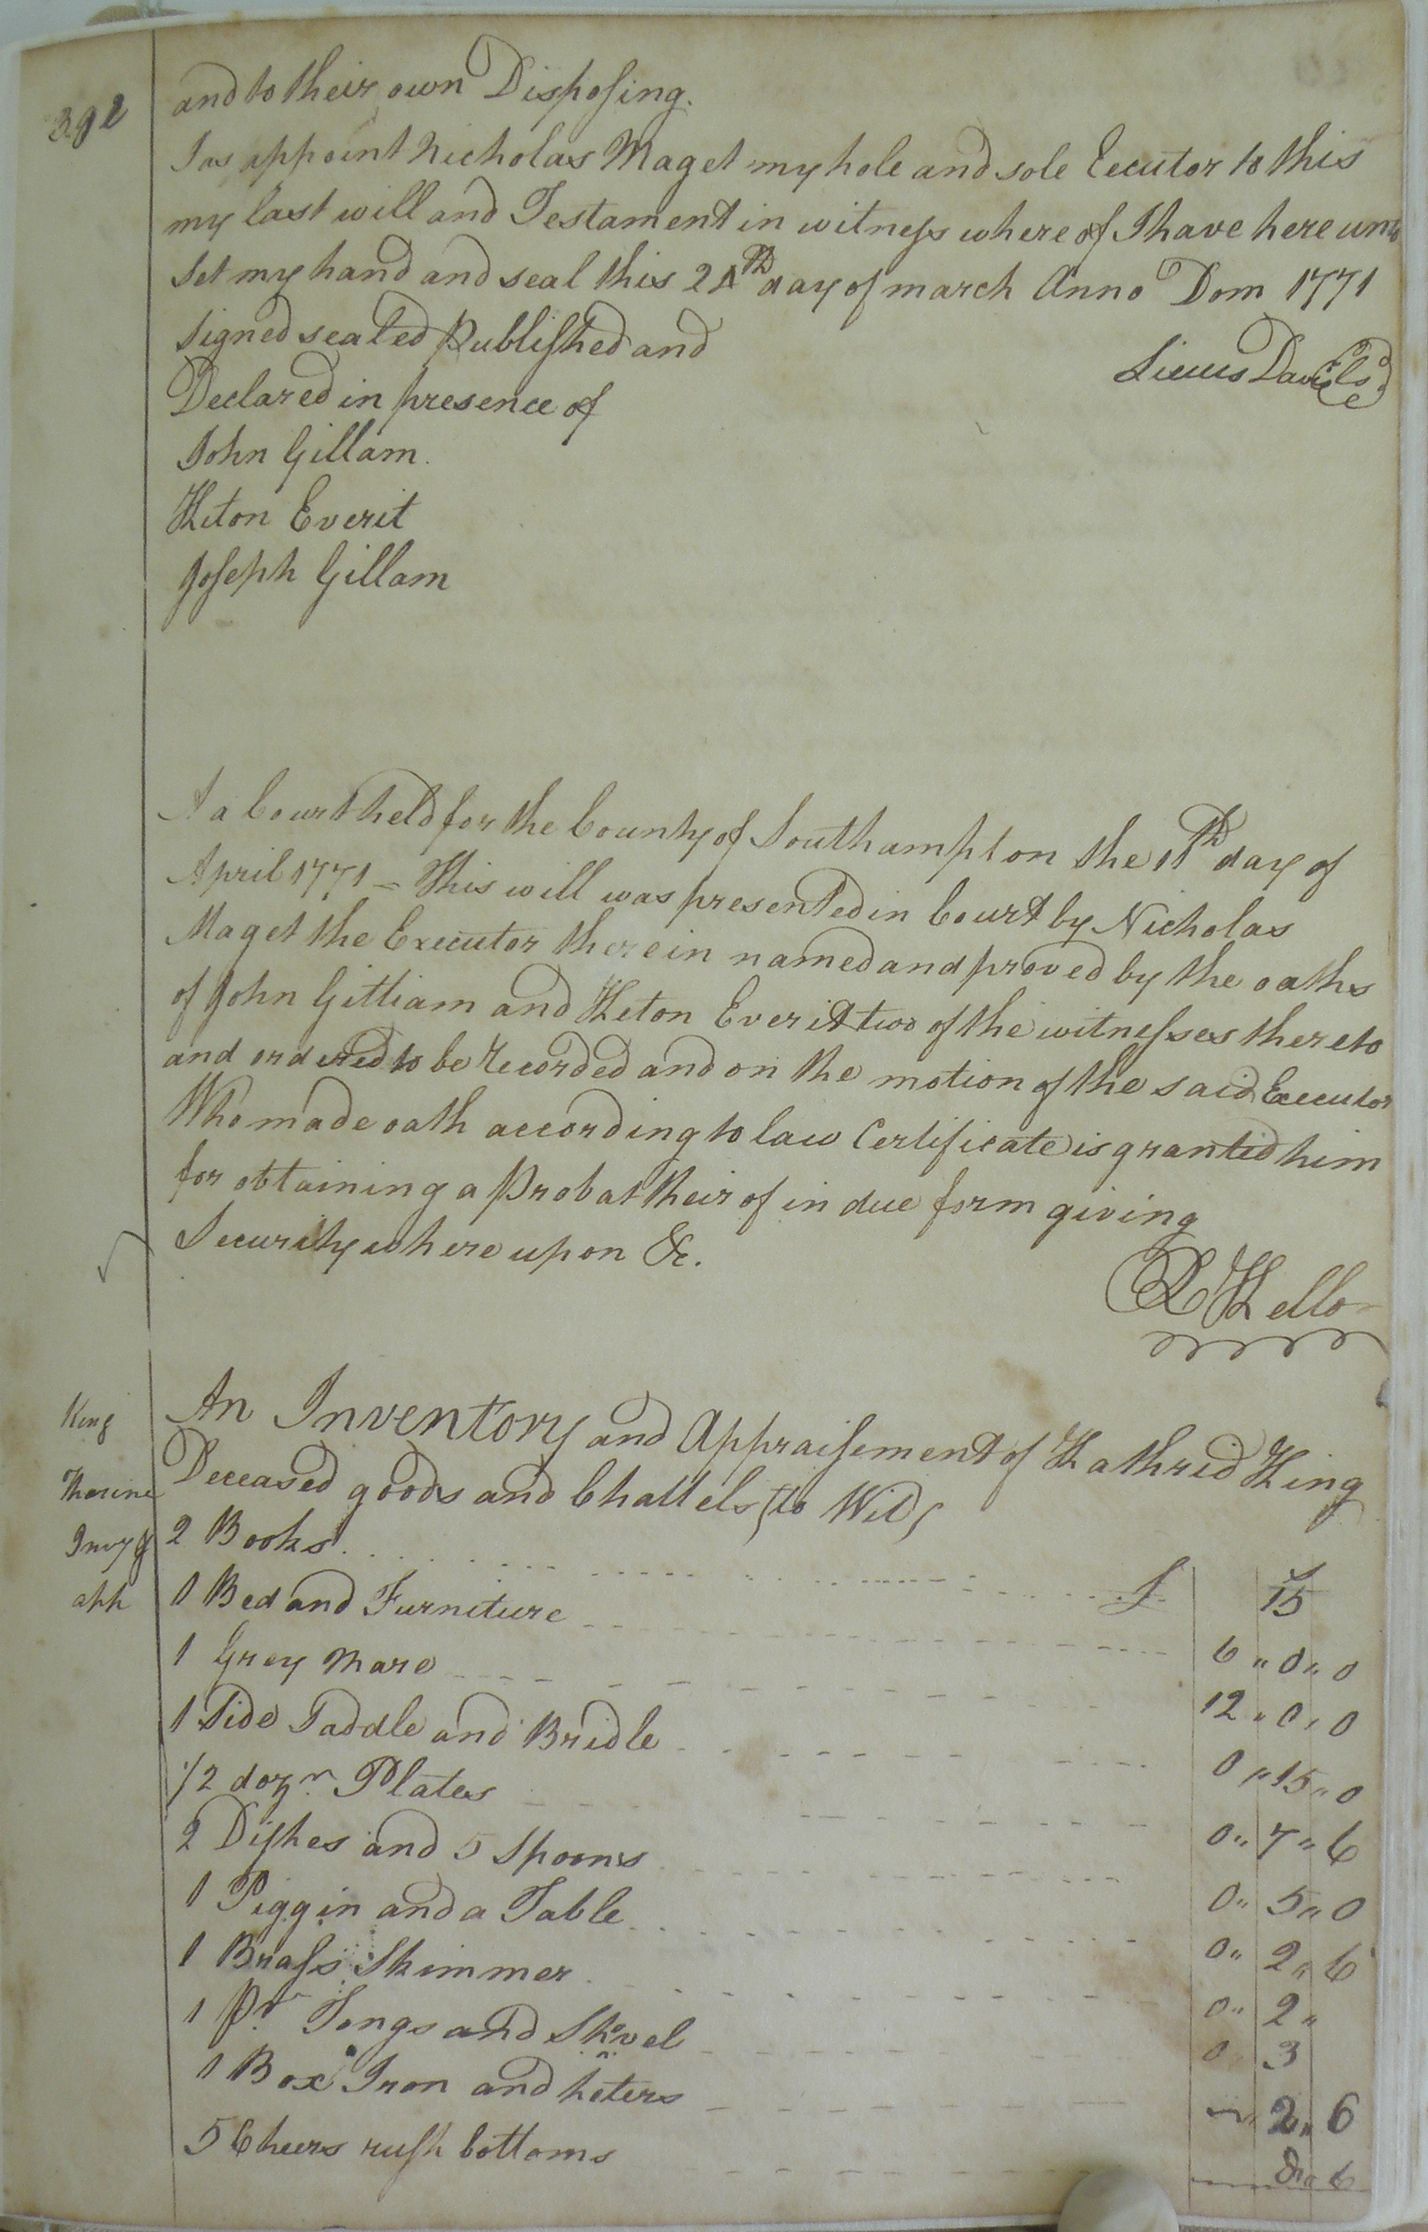 392
and to their own Disposing.
I as appoint Nicholas Maget my hole and sole Eecutor to this
my last will and Testament in witness where of I have here unto
Set my hand and seal this 24th day of march Anno Dom 1771
Signed sealed Published and
Declared in presence of
Davis
John Gillam.
Keton Everit
Joseph Gillam
At a Court held for the County of Southampton the 11th day of
April 1771 = This will was presented in Court by Nicholas
Maget the Executor therein named and proved by the oaths
of John Gilliam and Keton Everit two of the witnesses thereto
and ordered to be recorded and on the motion of the said Executor
Who made oath according to law Certificate is granted him
for obtaining a Probat their of in due form giving
Security where upon &c.
R Kello
King
An Inventory and Appraisement of Kathred King
Tharine
Deceased goods and Chattels (to Wit)
Invy &
2 Books £ 15
app
1 Bed and Furniture 6 " 0 " 0
1 Grey Mare 12 " 0 " 0
1 Side Saddle and Bridle 0 " 15 " 0
1/2 dozn Plates 0 " 7 " 6
2 Dishes and 5 Spoons 0 " 5 " 0
1 Piggin and a Table 0 " 2 " 6
1 Brass Skimmer 0 " 2 "
1 Pr Tongs and Shovel 0 3
1 Box Iron and heters 2 " 6
5 Cheers rush bottoms 6